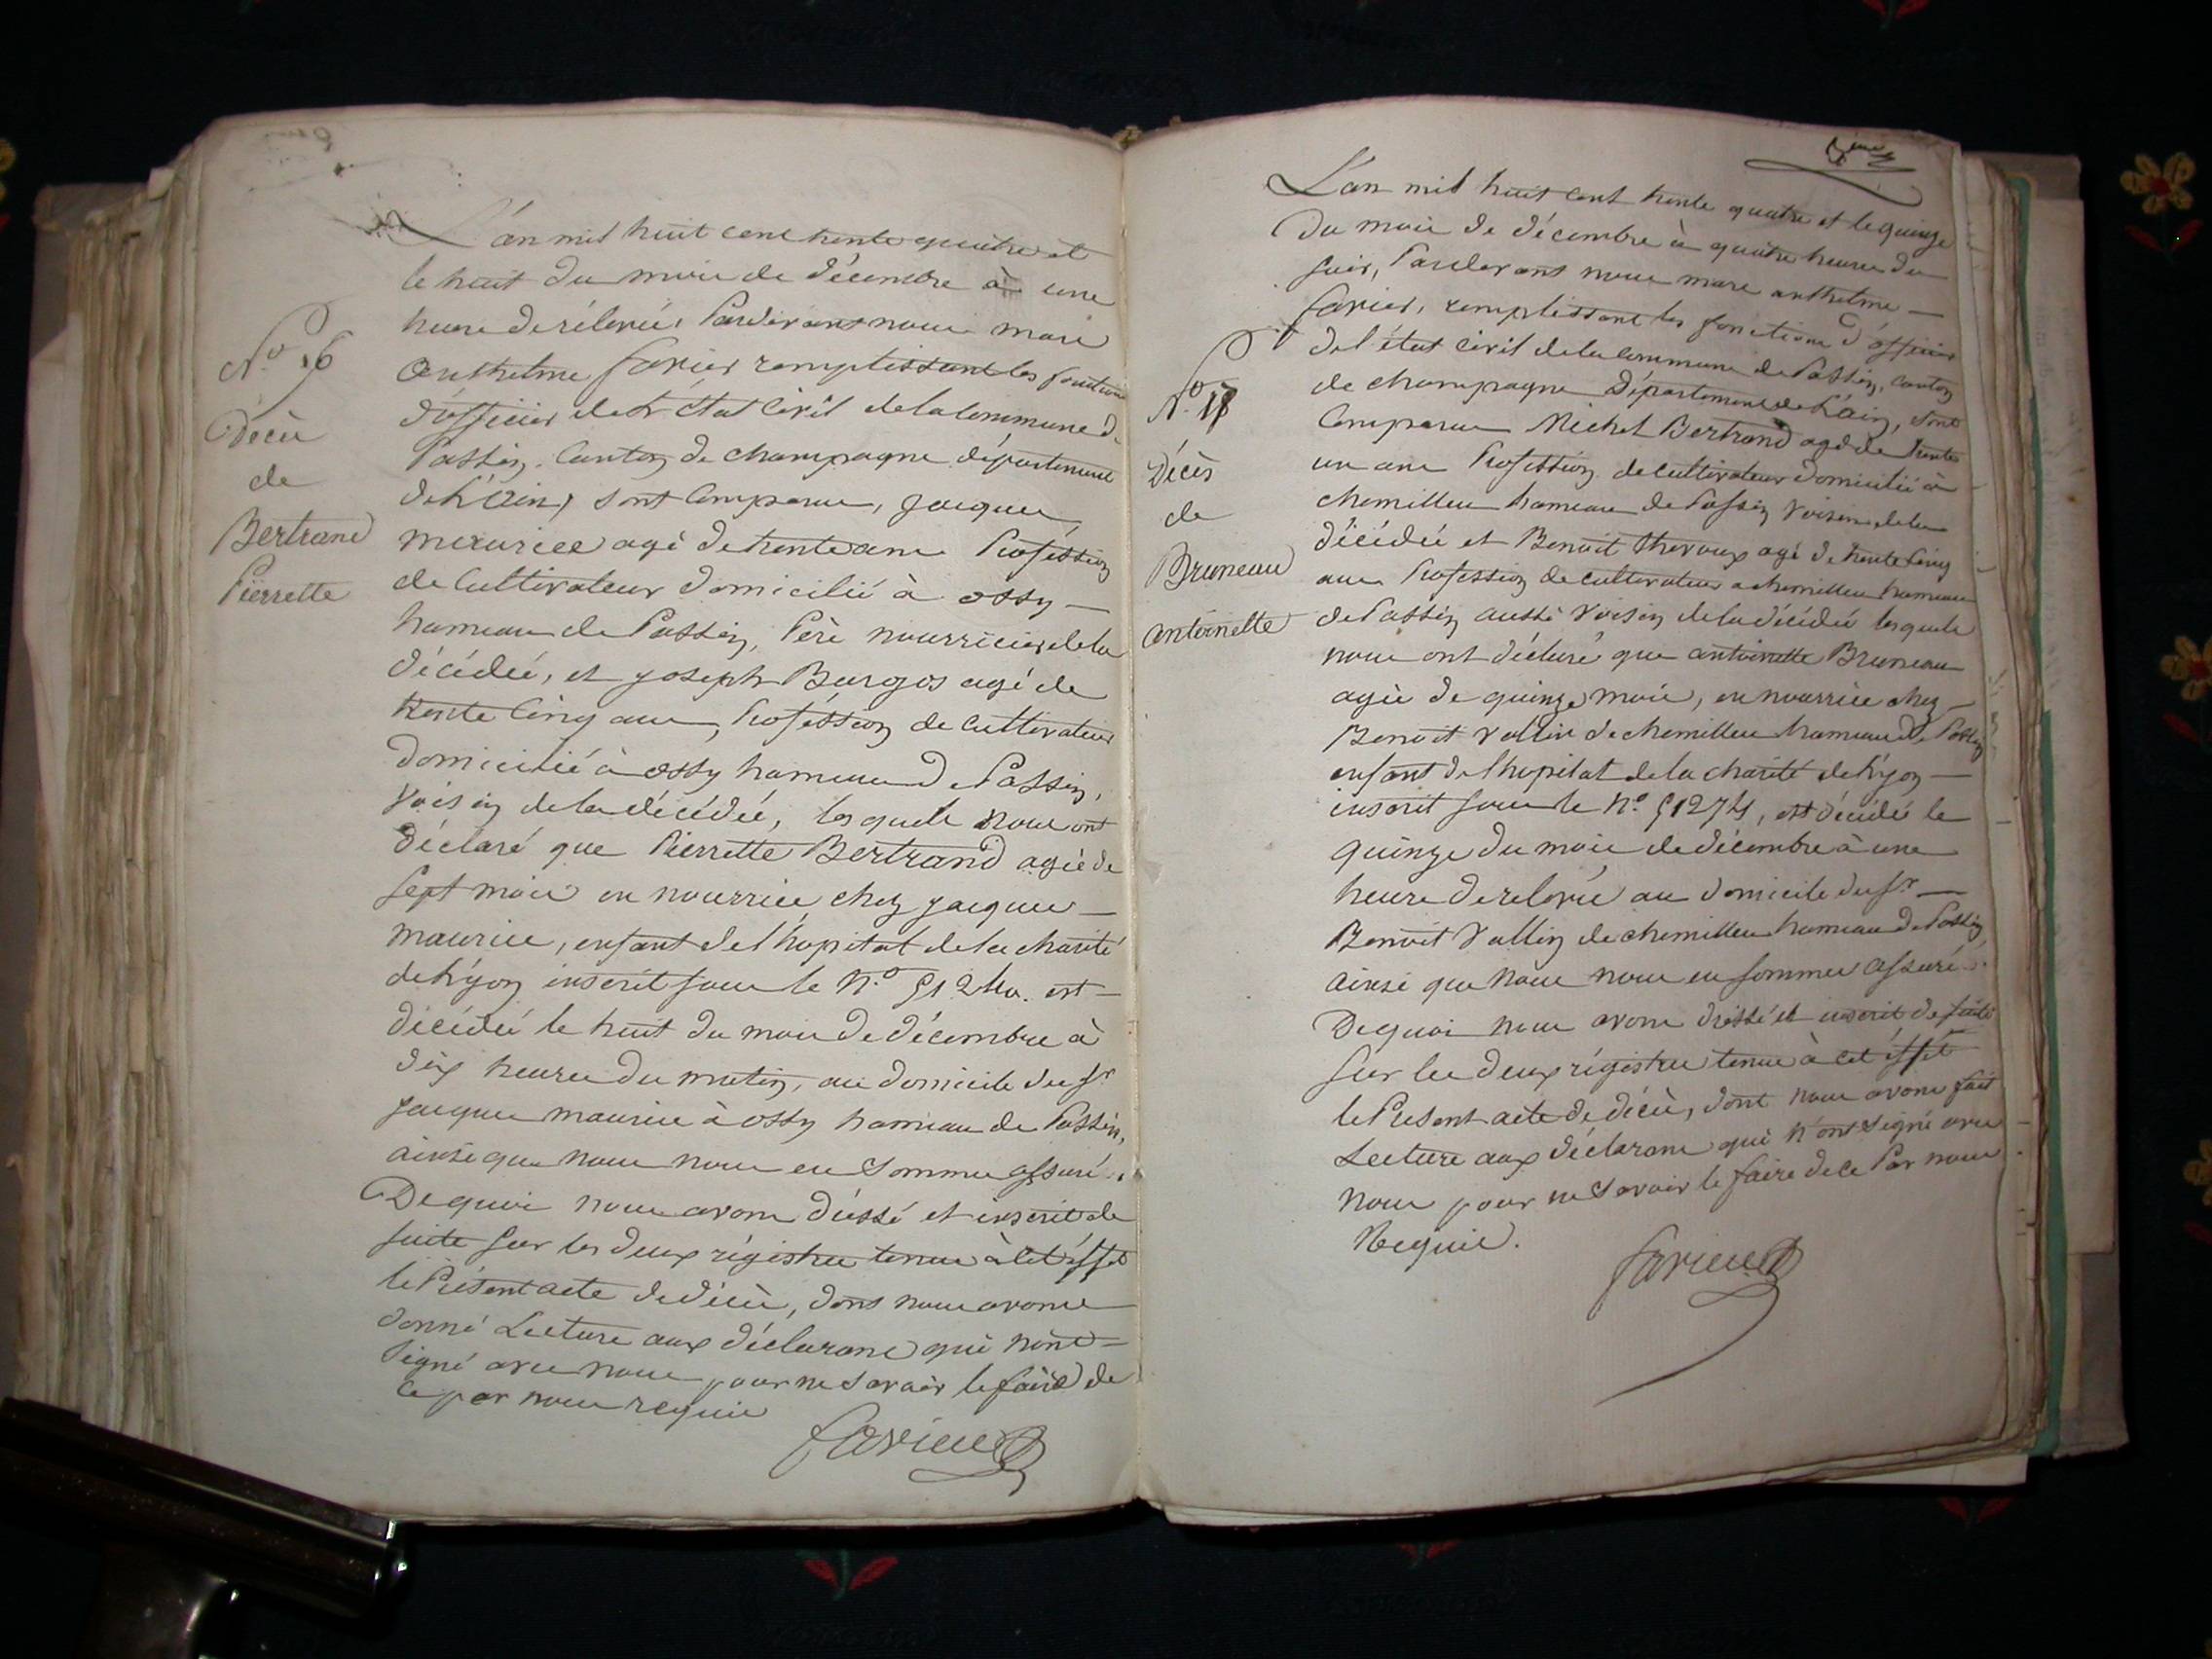 N.o 16
Décès
de
Bertrand
Pierrette
L'an mil huit cent trente quatre et
le huit du mois de décembre à une
heure de rélevée, Pardevant nous marc
anthelme favier remplissant les fonctions
d'officier de l'état Civil de la Commune de
Passin, Canton de Champagne département
de L'Ain, sont Comparus, jacques
meaurice agé de trente ans Profession
de Cultivateur domicilié à ossy
hameau de Passin, Père nourricier de la
décédée, et joseph Burgos agé de
trente Cinq ans, Proféssion de Cultivateur
domicilié à ossy hameau de Passin,
voisin de la décédée, lesquels nous ont
déclaré que Pierrette Bertrand agée de
sept mois en nourrice chez jacques
maurice, enfant de l'hopital de la charité
de Lyon inscrit sous le N.o est
décédée le huit du mois de décembre à
dix heures du matin, au domicile du sr
jacques maurice à ossy hameau de Passin,
ainsi que nous nous en sommes assuré.
De quoi nous avons dréssé et inscrit de
suite sur les deux régistres tenus à cet éffet
le Présent acte de décès, dont nous avons
donné Lecture aux déclarans qui n'ont
signé avec nous pour ne savoir le faire de
ce par nous requis
favier
L'an mil huit cent trente quatre et le quinze
du mois de décembre à quatre heures du
soir, Pardevant nous marc anthelme
favier, remplissant les fonctions d'officier
de l'état Civil de la Commune de Passin, canton
de champagne Département de L'ain, sont
Comparus Michel Bertrand agé de trente
un ans Profession de cultivateur domicilié à
chemilleu hameau de Passin voisin de la
décédée et Benoit thevoux agé de trente Cinq
ans Profession de cultivateur a chemilleu hameau
de Passin aussi voisin de la décédée lesquels
nous ont déclaré que antoinette Bruneau
agée de quinze mois, en nourrice chez
Benoit Vallin de chemilleu hameau de Passin
enfant de l'hopital de la charité de Lyon
inscrit sous le N.o 51274, est décédé le
quinze du mois de décembre à une
heure de relevée au domicile du sr
Benoit Vallin de chemilleu hameau de Passin
ainsi que nous nous en sommes assuré.
De quoi nous avons dressé et inscrit de suite
sur les deux régistres tenus à cet éffet
le Présent acte de décès, dont nous avons fait
Lecture aux déclarans qui n'ont signé avec
nous pour ne savoir le faire de ce Par nous
Requis.
favier
Décès
de
Bruneau
antoinette